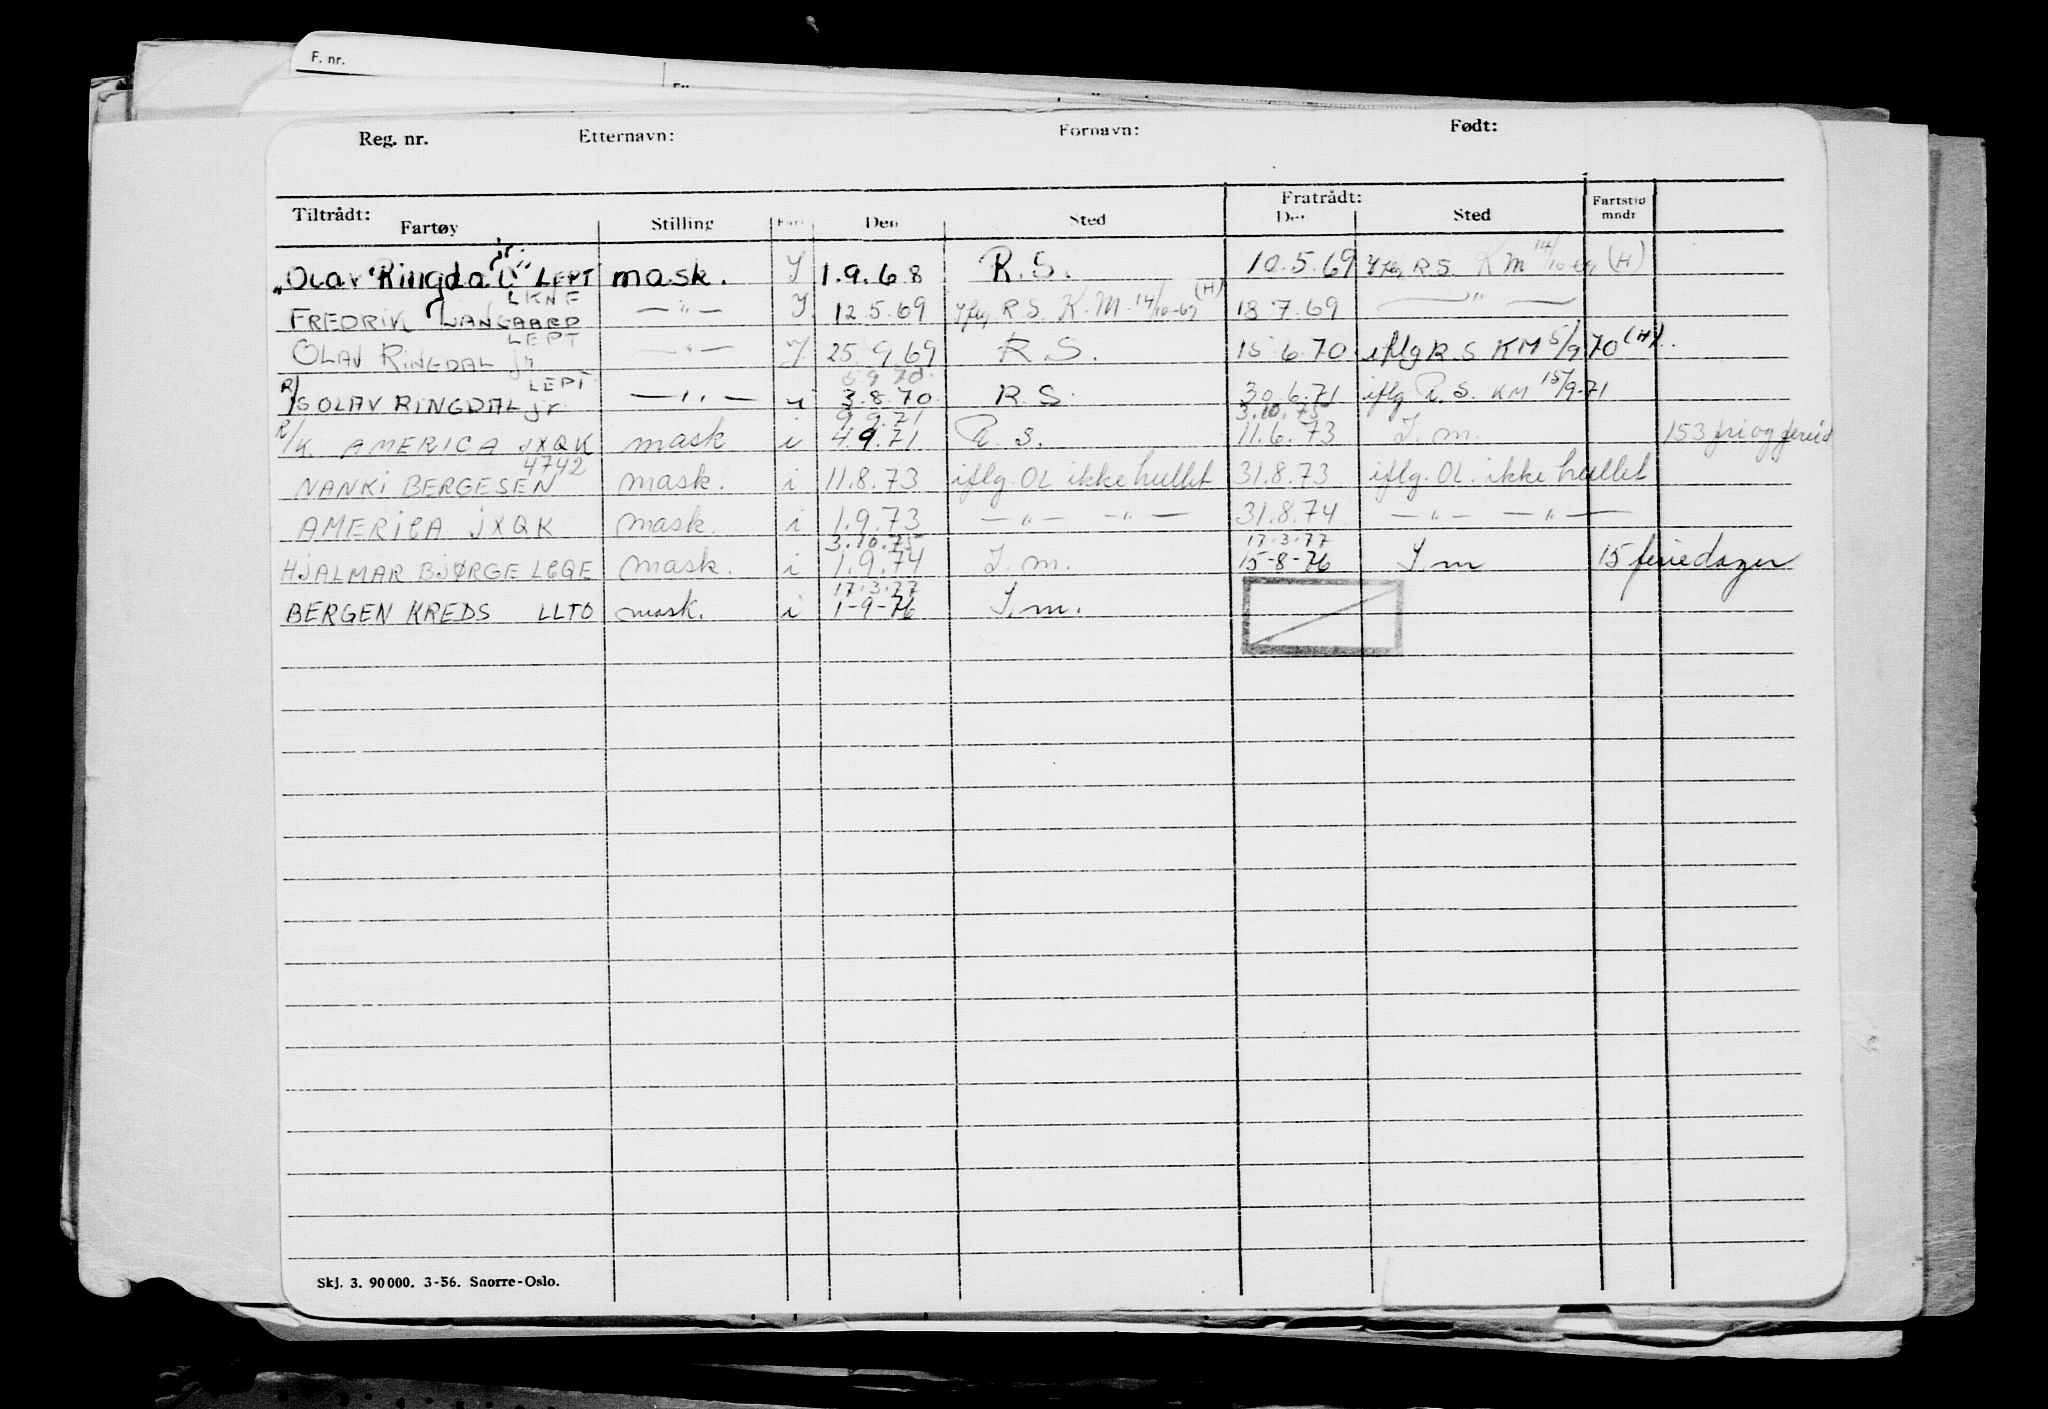 F. nr.
Reg. nr. Etternavn: Fornavn: Født:
Tiltrådt: Fratrådt:
Fartøy Stilling Fart Den Sted Den Sted Fartstid mndr
"Olav Ringdal jr." LEPT mask. I 1.9.68 R.S. 10.5.69 Iflg R S. K m 14/10-69 (H)
LKNF
FREDRIK LANGAARD — " — I 12.5.69 Iflg R.S. K.M. 14/10-69 (H) 18 7.69 — " —
LEPT
OLAV RINGDAL jr — " — I 25.9.69 R.S. 15 6.70 iflg R.S KM 5/9 70 (H).
LEPT 5 9 70
R/S OLAV RINGDAL jr — " — i 3.8.70 R S. 30.6.71 iflg R.S. KM 15/9-71
9.9.71 3.10.75
R/K. AMERICA JXQK mask i 4.9.71 R.S. 11.6.73 I.m. 153 fri og feried
4742
NANKI BERGESEN mask. i 11.8.73 iflg. OL ikke hullet 31.8.73 iflg. OL. ikke hullet
AMERICA JXQK mask. i 1.9.73 — " — — " — 31.8.74 — " — — " —
3.10.75 17.3.77
HJALMAR BJØRGE LCQE mask. i 1.9.74 I.m. 15-8-76 I.m 15 feriedager
17.3.77
BERGEN KREDS LLTO mask. i 1-9-76 I.m.
Skj. 3. 90000. 3-56. Snorre-Oslo.